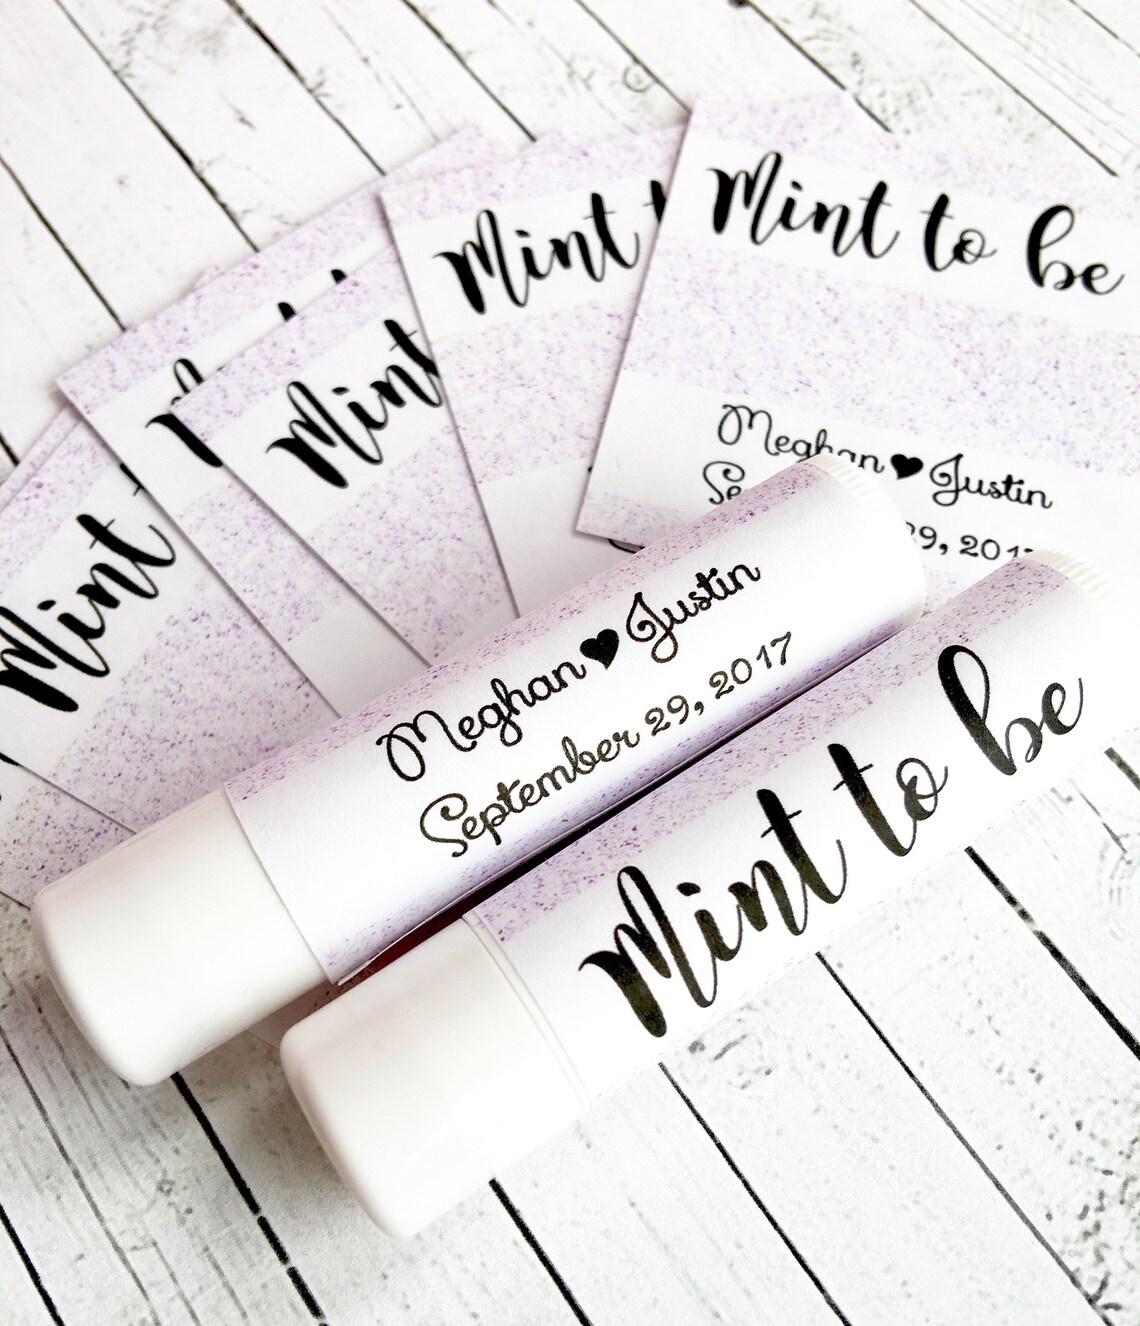 Mint to be
Meghan ♥ Justin
29, 2017
Mint
Mint
Mint
Meghan ♥ Justin
September 29, 2017
Mint to be